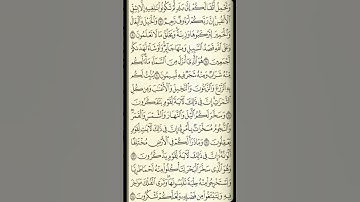 وَتَحْمِلُ أَثْقَالَكُمْ إِلَىٰ بَلَدٍ لَّمْ تَكُونُوا بَالِغِيهِ إِلَّا بِشِقِّ
الْأَنفُسِ إِنَّ رَبَّكُمْ لَرَءُوفٌ رَّحِيمٌ ۝ وَالْخَيْلَ وَالْبِغَالَ
وَالْحَمِيرَ لِتَرْكَبُوهَا وَزِينَةً وَيَخْلُقُ مَا لَا تَعْلَمُونَ ۝
وَعَلَى اللَّهِ قَصْدُ السَّبِيلِ وَمِنْهَا جَائِرٌ وَلَوْ شَاءَ لَهَدَىٰكُمْ
أَجْمَعِينَ ۝ هُوَ الَّذِي أَنزَلَ مِنَ السَّمَاءِ مَاءً لَّكُم
مِّنْهُ شَرَابٌ وَمِنْهُ شَجَرٌ فِيهِ تُسِيمُونَ ۝ يُنبِتُ لَكُم
بِهِ الزَّرْعَ وَالزَّيْتُونَ وَالنَّخِيلَ وَالْأَعْنَابَ وَمِن كُلِّ
الثَّمَرَاتِ إِنَّ فِي ذَٰلِكَ لَآيَةً لِّقَوْمٍ يَتَفَكَّرُونَ ۝
وَسَخَّرَ لَكُمُ اللَّيْلَ وَالنَّهَارَ وَالشَّمْسَ وَالْقَمَرَ
وَالنُّجُومُ مُسَخَّرَاتٌ بِأَمْرِهِ إِنَّ فِي ذَٰلِكَ لَآيَاتٍ لِّقَوْمٍ
يَعْقِلُونَ ۝ وَمَا ذَرَأَ لَكُمْ فِي الْأَرْضِ مُخْتَلِفًا
أَلْوَانُهُ إِنَّ فِي ذَٰلِكَ لَآيَةً لِّقَوْمٍ يَذَّكَّرُونَ ۝
وَهُوَ الَّذِي سَخَّرَ الْبَحْرَ لِتَأْكُلُوا مِنْهُ لَحْمًا طَرِيًّا
وَتَسْتَخْرِجُوا مِنْهُ حِلْيَةً تَلْبَسُونَهَا وَتَرَى الْفُلْكَ مَوَاخِرَ
فِيهِ وَلِتَبْتَغُوا مِن فَضْلِهِ وَلَعَلَّكُمْ تَشْكُرُونَ ۝